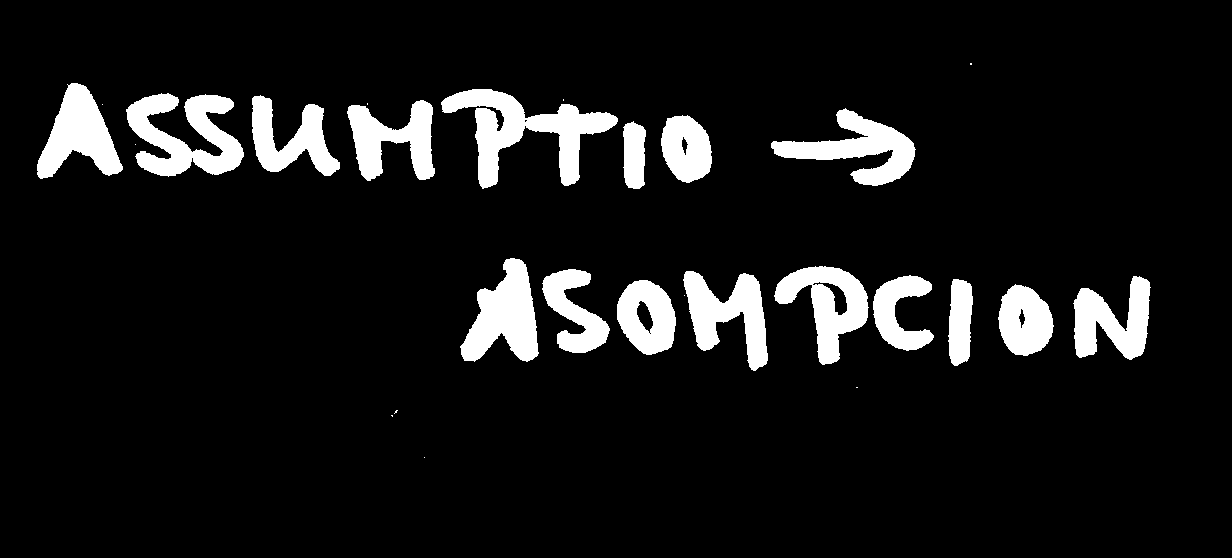 ASSUMPTIO →
ASOMPCION